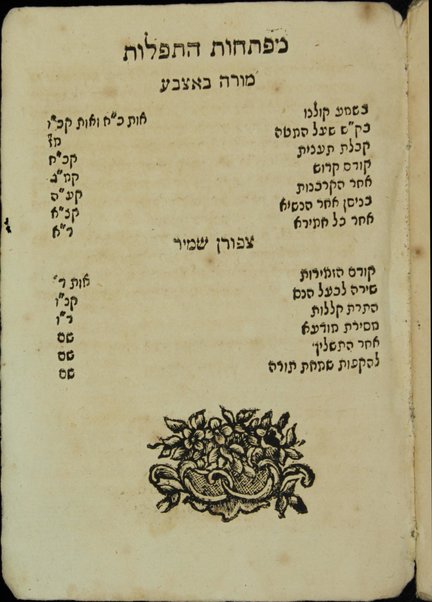 מפתחות התפלות
מורה באצבע
בשמע קולנו אות כ"ח ואות קכ"ו
בק"ש שעל המטה מז
קבלת תענית קכ"ח
קודם קדוש קמ"ב
אחר הקרבנות קע"ה
בניסן אחר הנשיא קנ"א
אחר כל אמירא ר"א
צפורן שמיר
קודם הזמירות אות ר'
שירה לבעל הנס קנ"ו
התרת קללות ר"ו
מסירת מודעא שם
אחר התשליך שם
להקפות שמחת תורה שם